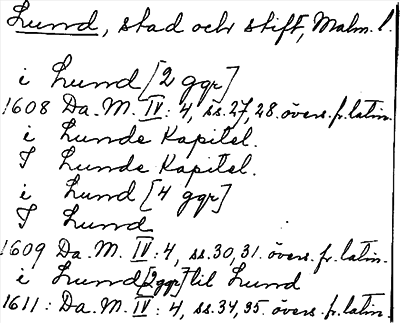 Lund, stad och stift, Malm. l.
i Lund [2 ggr]
1608 Da. M. IV: 4, ss. 27, 28. övers. fr. latin.
i Lunde Kapitel.
I Lunde Kapitel.
i Lund [4 ggr]
I Lund
1609 Da. M. IV: 4, ss. 30, 31. övers. fr. latin.
i Lund [2 ggr] til Lund
1611: Da. M. IV: 4, ss. 34, 35. övers. fr. latin.